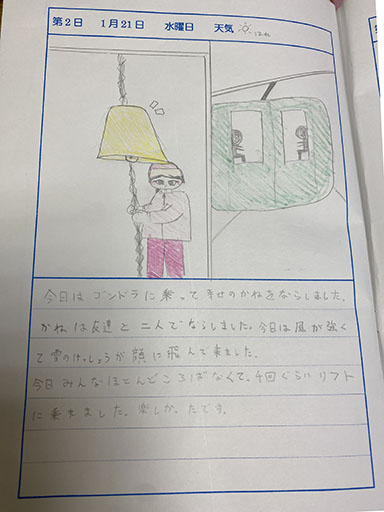 第2日 1月21日 水曜日 天気 はれ
今日はゴンドラに乗って幸せのかねをならしました。
かねは友達と二人でならしました。今日は風が強く
て雪のけっしょうが顔に飛んで来ました。
今日みんなほとんどころばなくて、4回ぐらいリフト
に乗れました。楽しかったです。